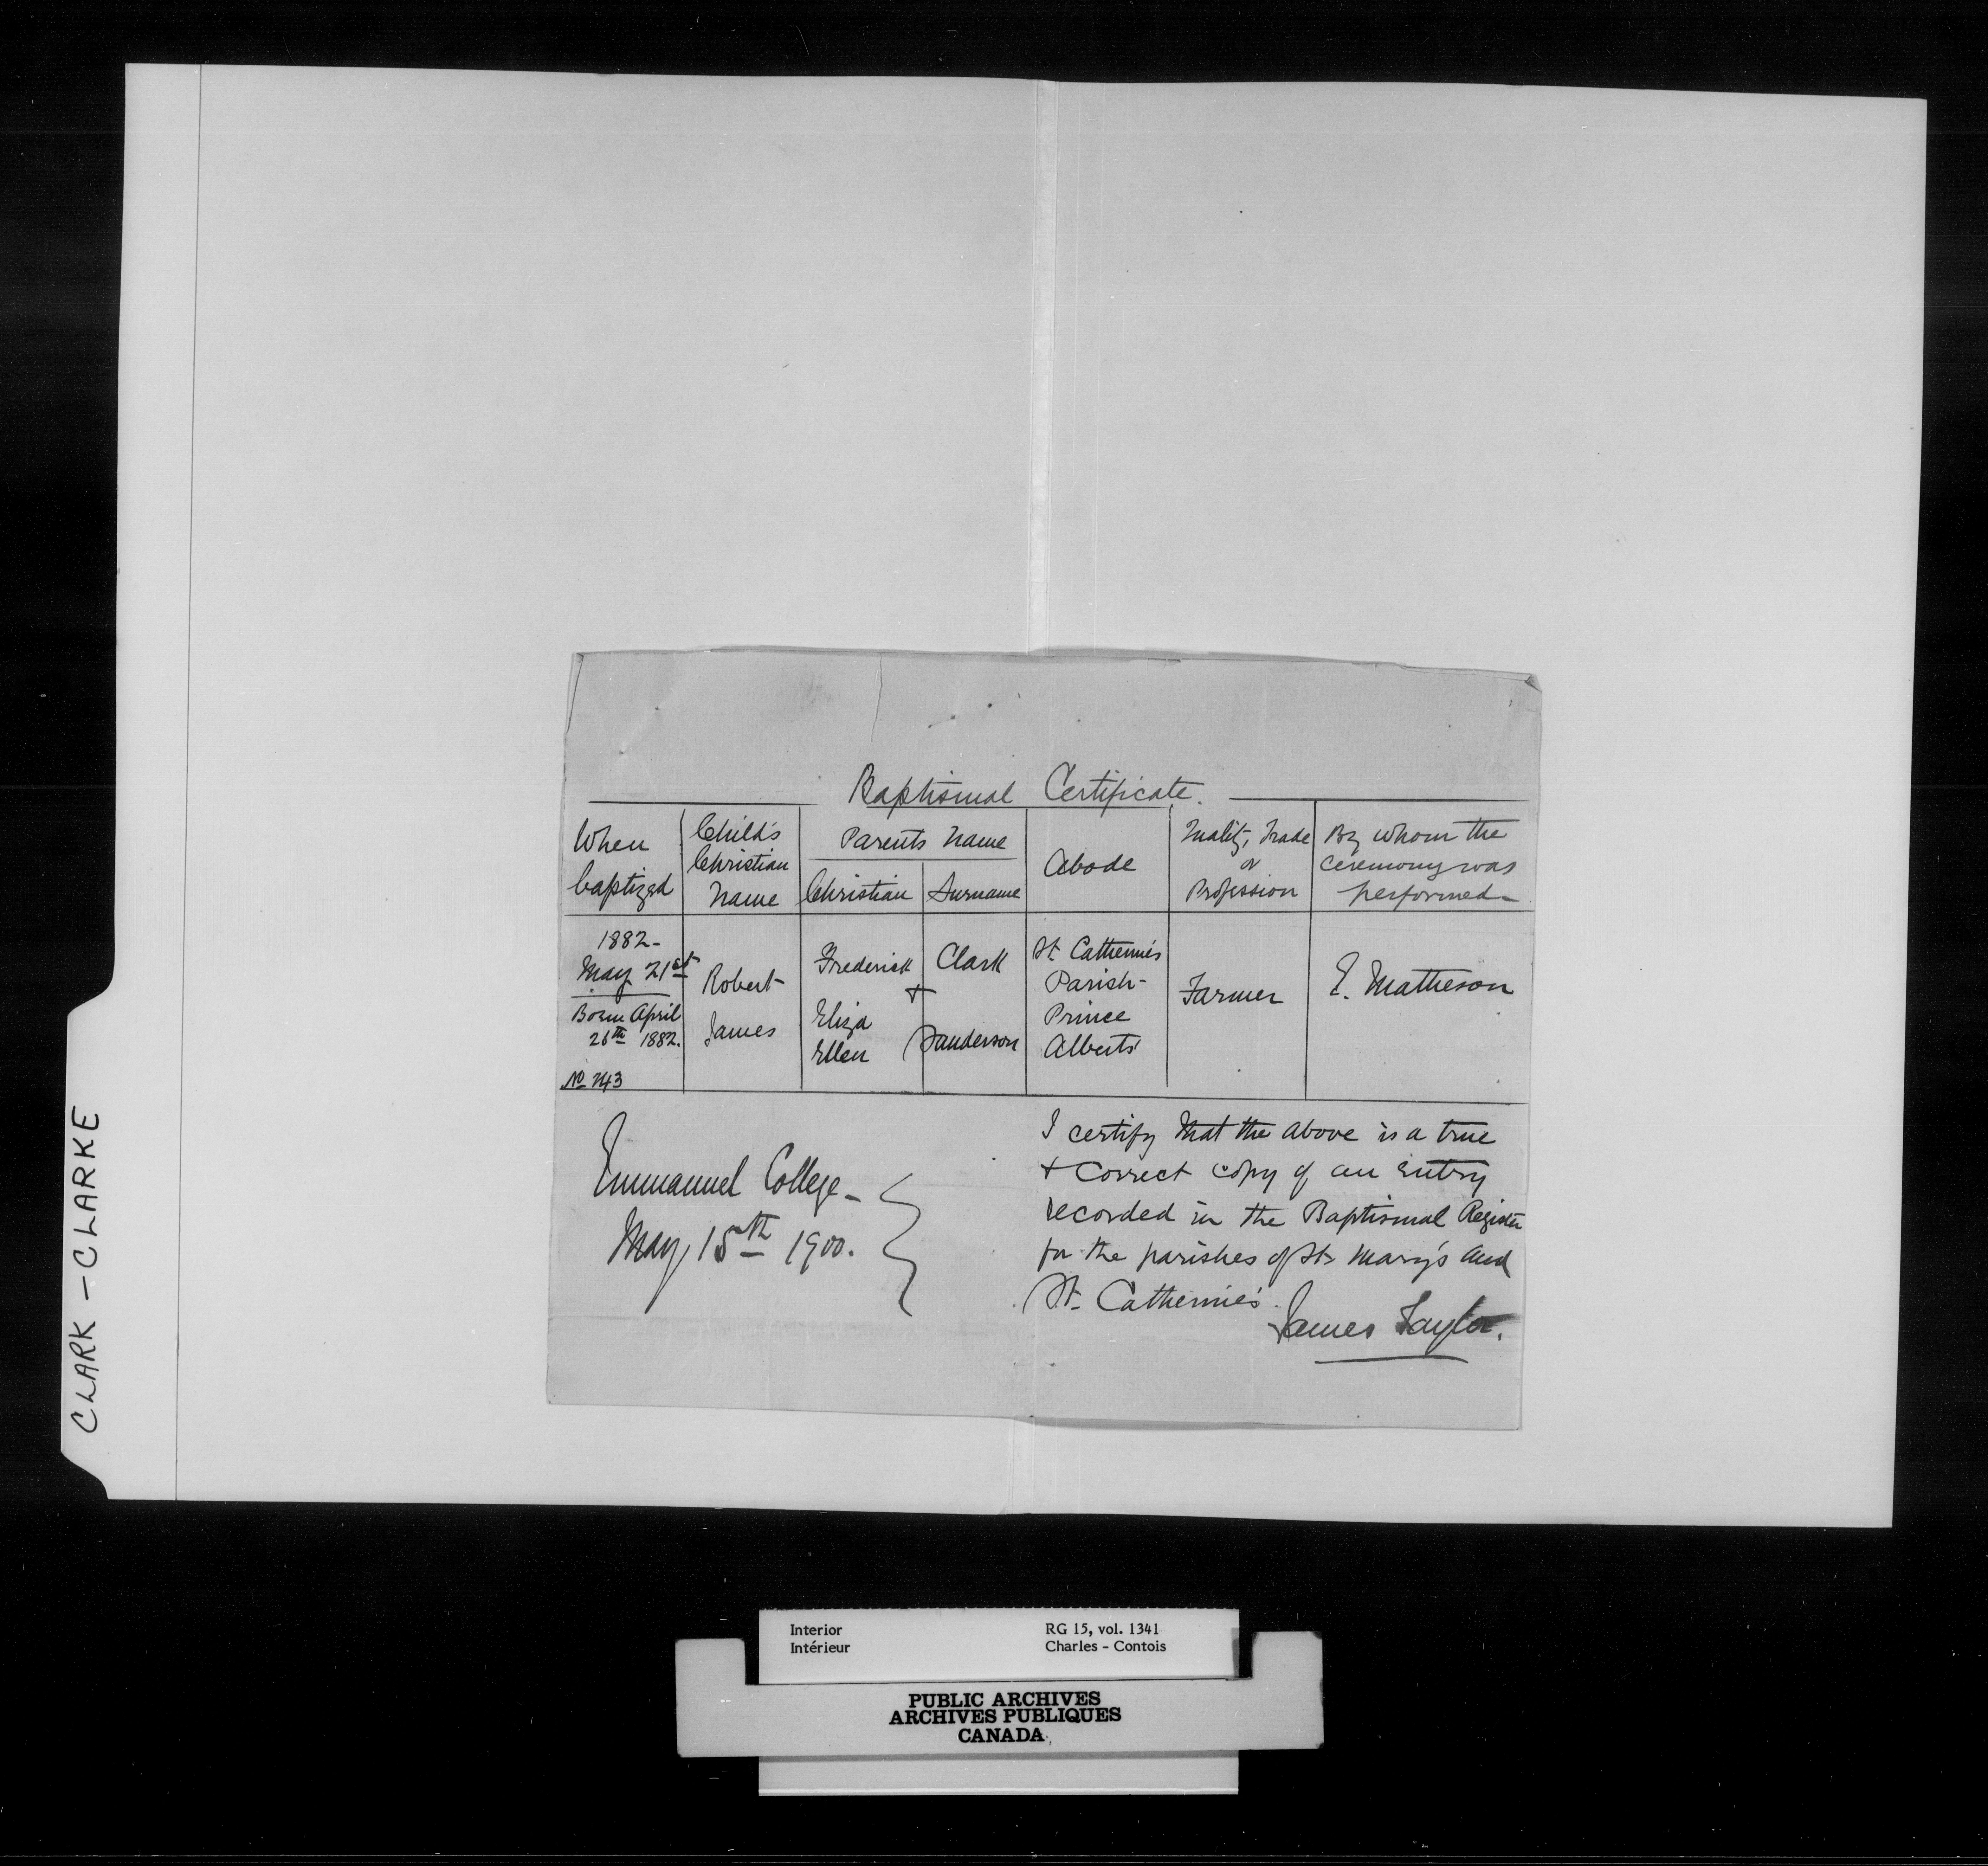 Baptismal Certificate.
When baptized
Child's Christian Name
Parents Name
Christian
Surname
Abode
Quality, Trade or Profession
By whom the ceremony was performed
1882-
May 21st
Born April
26th 1882.
No 243
Robert
James
Frederick
+
Eliza
Ellen
Clark
Sanderson
St Catherine's
Parish-
Prince
Albert
Farmer
E. Matheson
Emmanuel College-
May 15th 1900.
I certify that the above is a true
+ correct copy of an entry
recorded in the Baptismal Register
for the parishes of St Mary's and
St. Catherine's.
James Taylor.
CLARK - CLARKE
Interior
Intérieur
RG 15, vol. 1341
Charles - Contois
PUBLIC ARCHIVES
ARCHIVES PUBLIQUES
CANADA